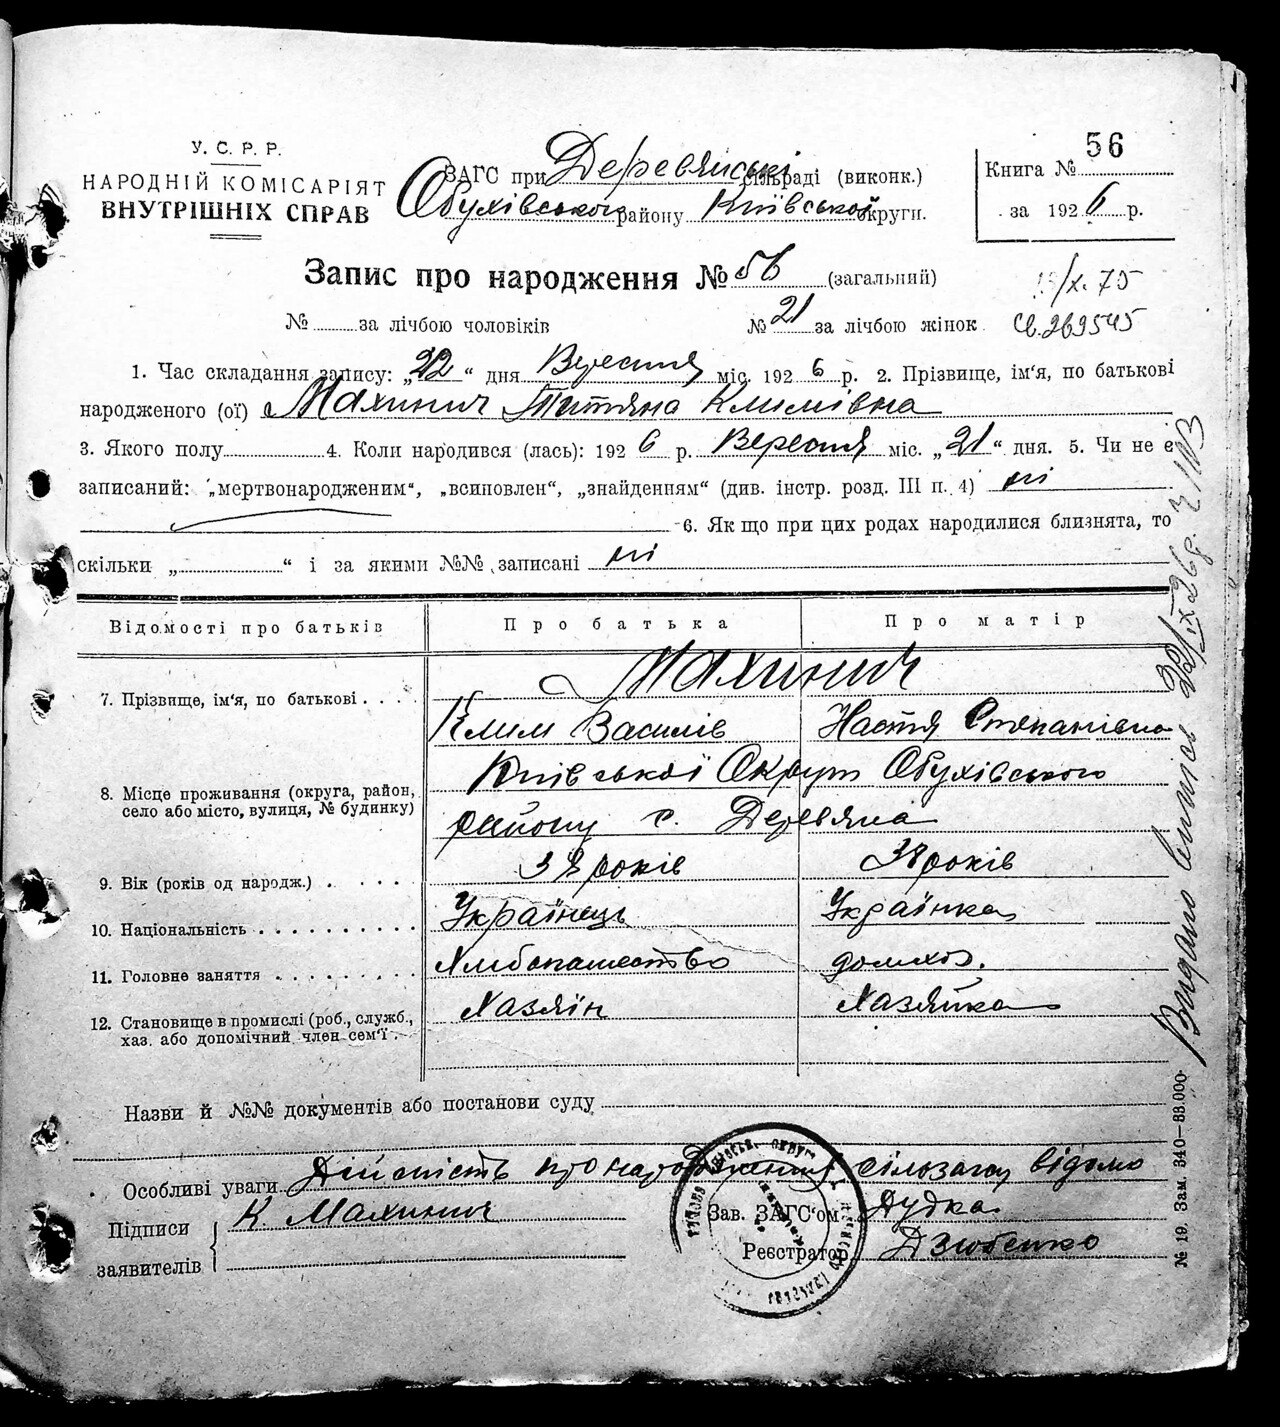 56
У. С. Р. Р.
НАРОДНІЙ КОМІСАРІЯТ
ВНУТРІШНІХ СПРАВ
ЗАГС при Деревянській сільраді (виконк.)
Обухівського району Київської округи.
Книга №
за 1926 р.
Запис про народження № 56 (загальний)
/X. 75
№ за лічбою чоловіків № 21 за лічбою жінок
Св. 269545
1. Час складання запису: „22“ дня Вересня міс. 1926 р. 2. Прізвище, ім'я, по батькові
народженого (ої) Махинич Титяна Климівна
3. Якого полу 4. Коли народився (лась): 1926 р. Вересня міс. „21“ дня. 5. Чи не є
записаний: „мертвонародженим“, „всиновлен“, „знайденням“ (див. інстр. розд. III п. 4) ні
6. Як що при цих родах народилися близнята, то
скільки „ “ і за якими №№ записані ні
Відомості про батьків Про батька Про матір
Махинич
7. Прізвище, ім'я, по батькові
Клим Василів Настя Степанівна
Київської Округи Обухівського
8. Місце проживання (округа, район,
село або місто, вулиця, № будинку)
району с. Деревяна
9. Вік (років од народж.) 38 років 38 років
10. Національність Українець Українка
11. Головне заняття Хлибопашество домхоз.
12. Становище в промислі (роб., служб.,
хаз. або допомічний член сем'ї
Хазяін Хазяйка
Назви й №№ документів або постанови суду
Особливі уваги Дійсність про народження сільзагсу відомо
Підписи
заявителів
К Махинич
Зав. ЗАГС'ом Дудка
Реєстратор Дзюбенко
Видано
№ 19. Зам. 340—88.000